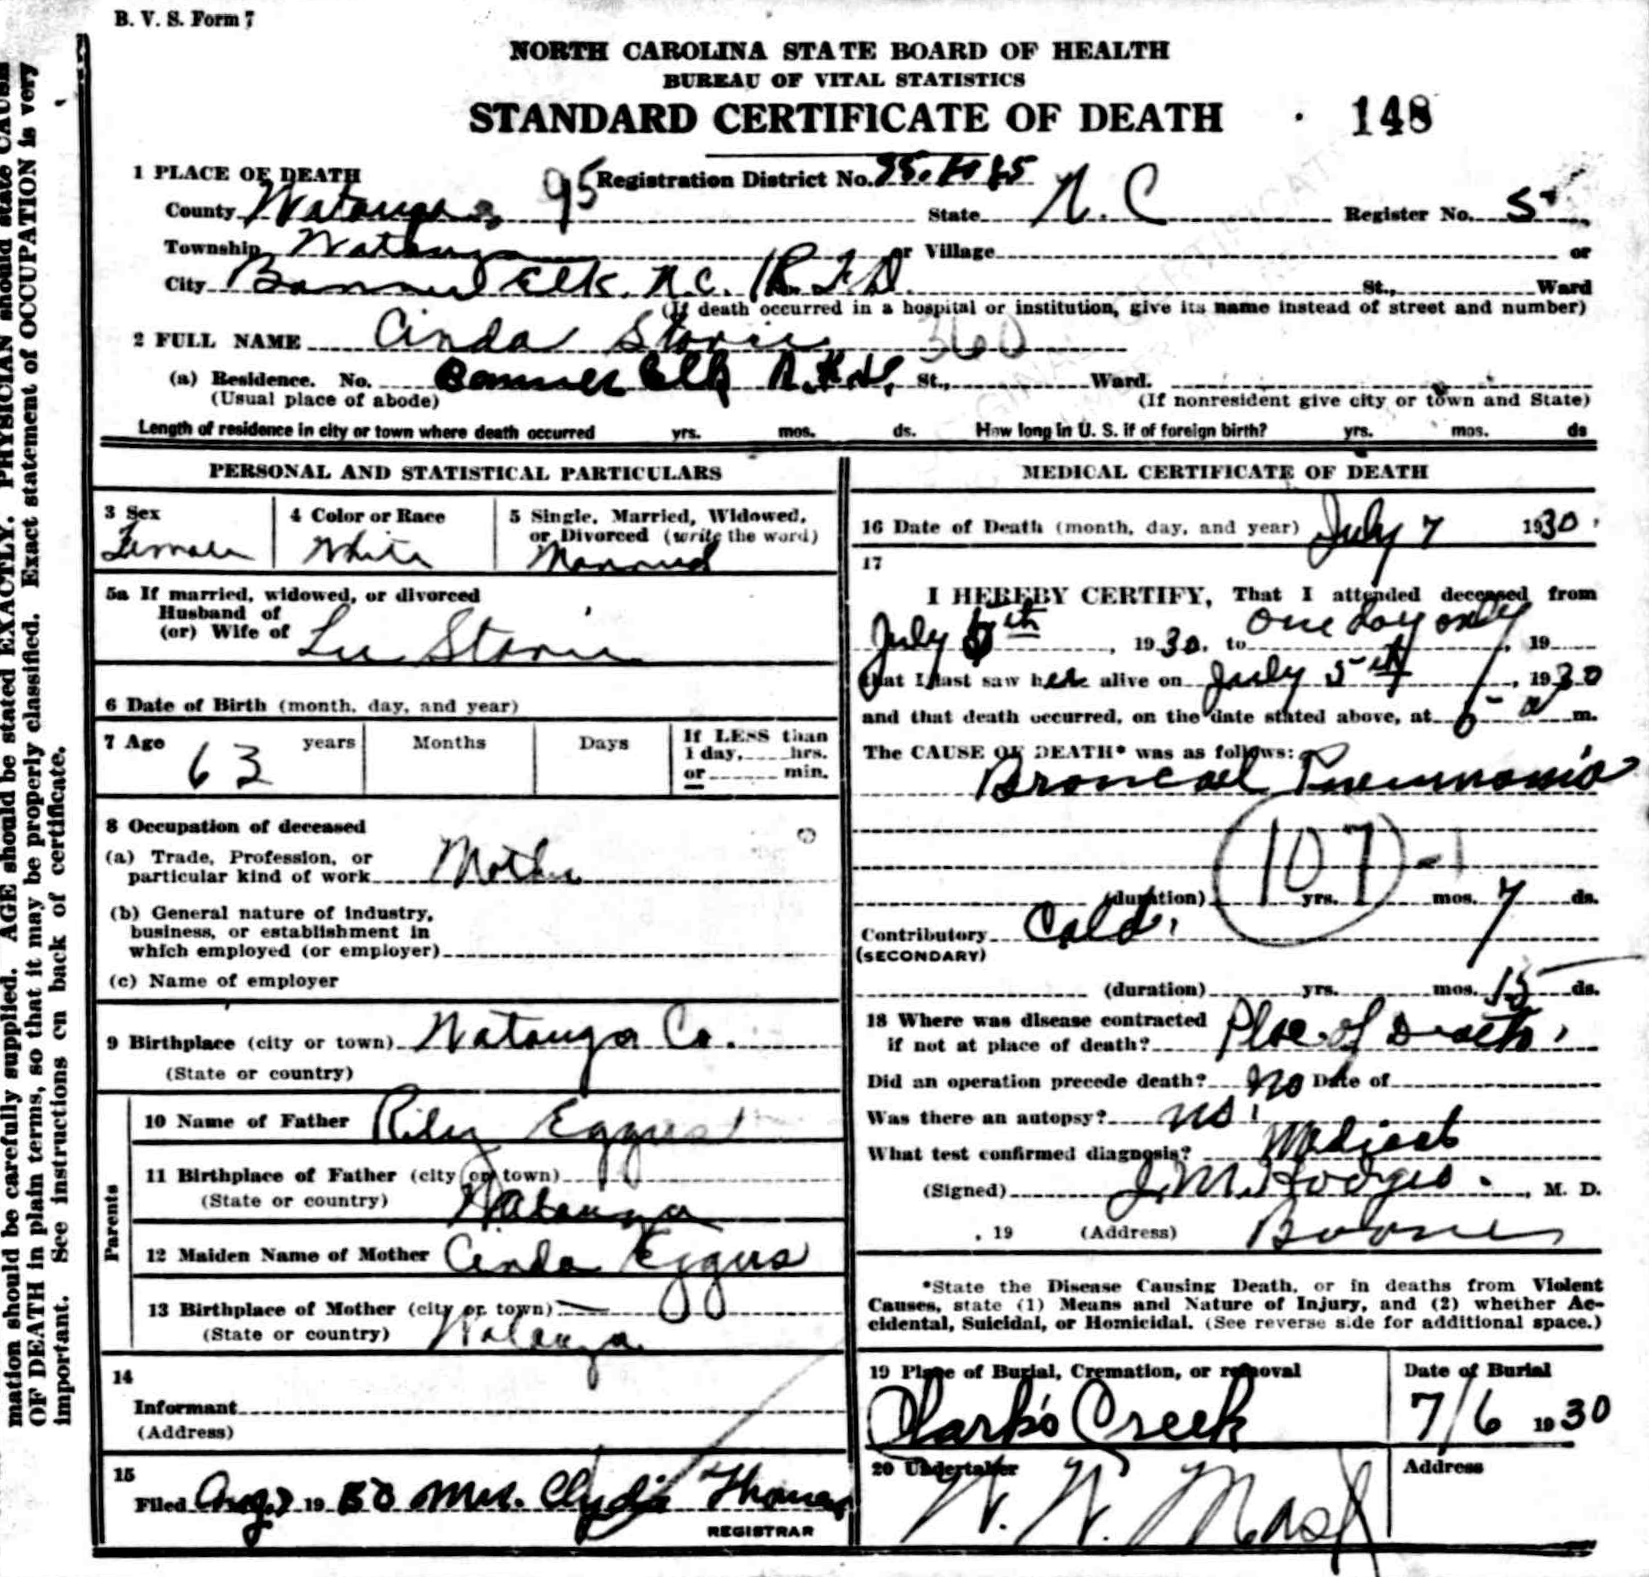 B. V. S. Form 7
NORTH CAROLINA STATE BOARD OF HEALTH
BUREAU OF VITAL STATISTICS
STANDARD CERTIFICATE OF DEATH 148
1 PLACE OF DEATH 95 Registration District No.
County Watauga State N. C Register No. 5
Township Watauga or Village or
City Banner Elk, N.C. R.F.D. St., Ward
(If death occurred in a hospital or institution, give its name instead of street and number)
2 FULL NAME Cinda Storie 360
(a) Residence. No. Banner Elk R.F.D. St., Ward.
(Usual place of abode) (If nonresident give city or town and State)
Length of residence in city or town where death occurred yrs. mos. ds. How long in U. S. if of foreign birth? yrs. mos. ds
PERSONAL AND STATISTICAL PARTICULARS
3 Sex
Female
4 Color or Race
White
5 Single, Married, Widowed,
or Divorced (write the word)
Married
5a If married, widowed, or divorced
Husband of
(or) Wife of Storie
6 Date of Birth (month, day, and year)
7 Age 63 years Months Days If LESS than
1 day, hrs.
or min.
8 Occupation of deceased
(a) Trade, Profession, or
particular kind of work Mother
(b) General nature of industry,
business, or establishment in
which employed (or employer)
(c) Name of employer
9 Birthplace (city or town) Watauga Co.
(State or country)
Parents
10 Name of Father Riley
11 Birthplace of Father (city or town)
(State or country) Watauga
12 Maiden Name of Mother Cinda Eggers
13 Birthplace of Mother (city or town)
(State or country) Watauga
14
Informant
(Address)
15
Filed Aug 7 1930 Mrs. Clyde Thomas
REGISTRAR
MEDICAL CERTIFICATE OF DEATH
16 Date of Death (month, day, and year) July 7 1930.
17
I HEREBY CERTIFY, That I attended deceased from
July 5th, 1930, to one day only, 19
that I last saw her alive on July 5th, 1930
and that death occurred, on the date stated above, at a m.
The CAUSE OF DEATH* was as follows:
Broncael Pneumonia
107-1
(duration) yrs. mos. 7 ds.
Contributory Cold.
(SECONDARY)
(duration) yrs. mos. 15 ds.
18 Where was disease contracted
if not at place of death? Place of Death.
Did an operation precede death? No Date of
Was there an autopsy? no
What test confirmed diagnosis?
(Signed) J. M. Hodges. , M. D.
, 19 (Address) Boone
*State the Disease Causing Death, or in deaths from Violent
Causes, state (1) Means and Nature of Injury, and (2) whether Ac-
cidental, Suicidal, or Homicidal. (See reverse side for additional space.)
19 Place of Burial, Cremation, or removal
Clark's Creek
Date of Burial
7/6 1930
20 Undertaker
W. W. Mast
Address
mation should be carefully supplied. AGE should be stated EXACTLY. PHYSICIAN should state CAUSE
OF DEATH in plain terms, so that it may be properly classified. Exact statement of OCCUPATION is very
important. See instructions on back of certificate.